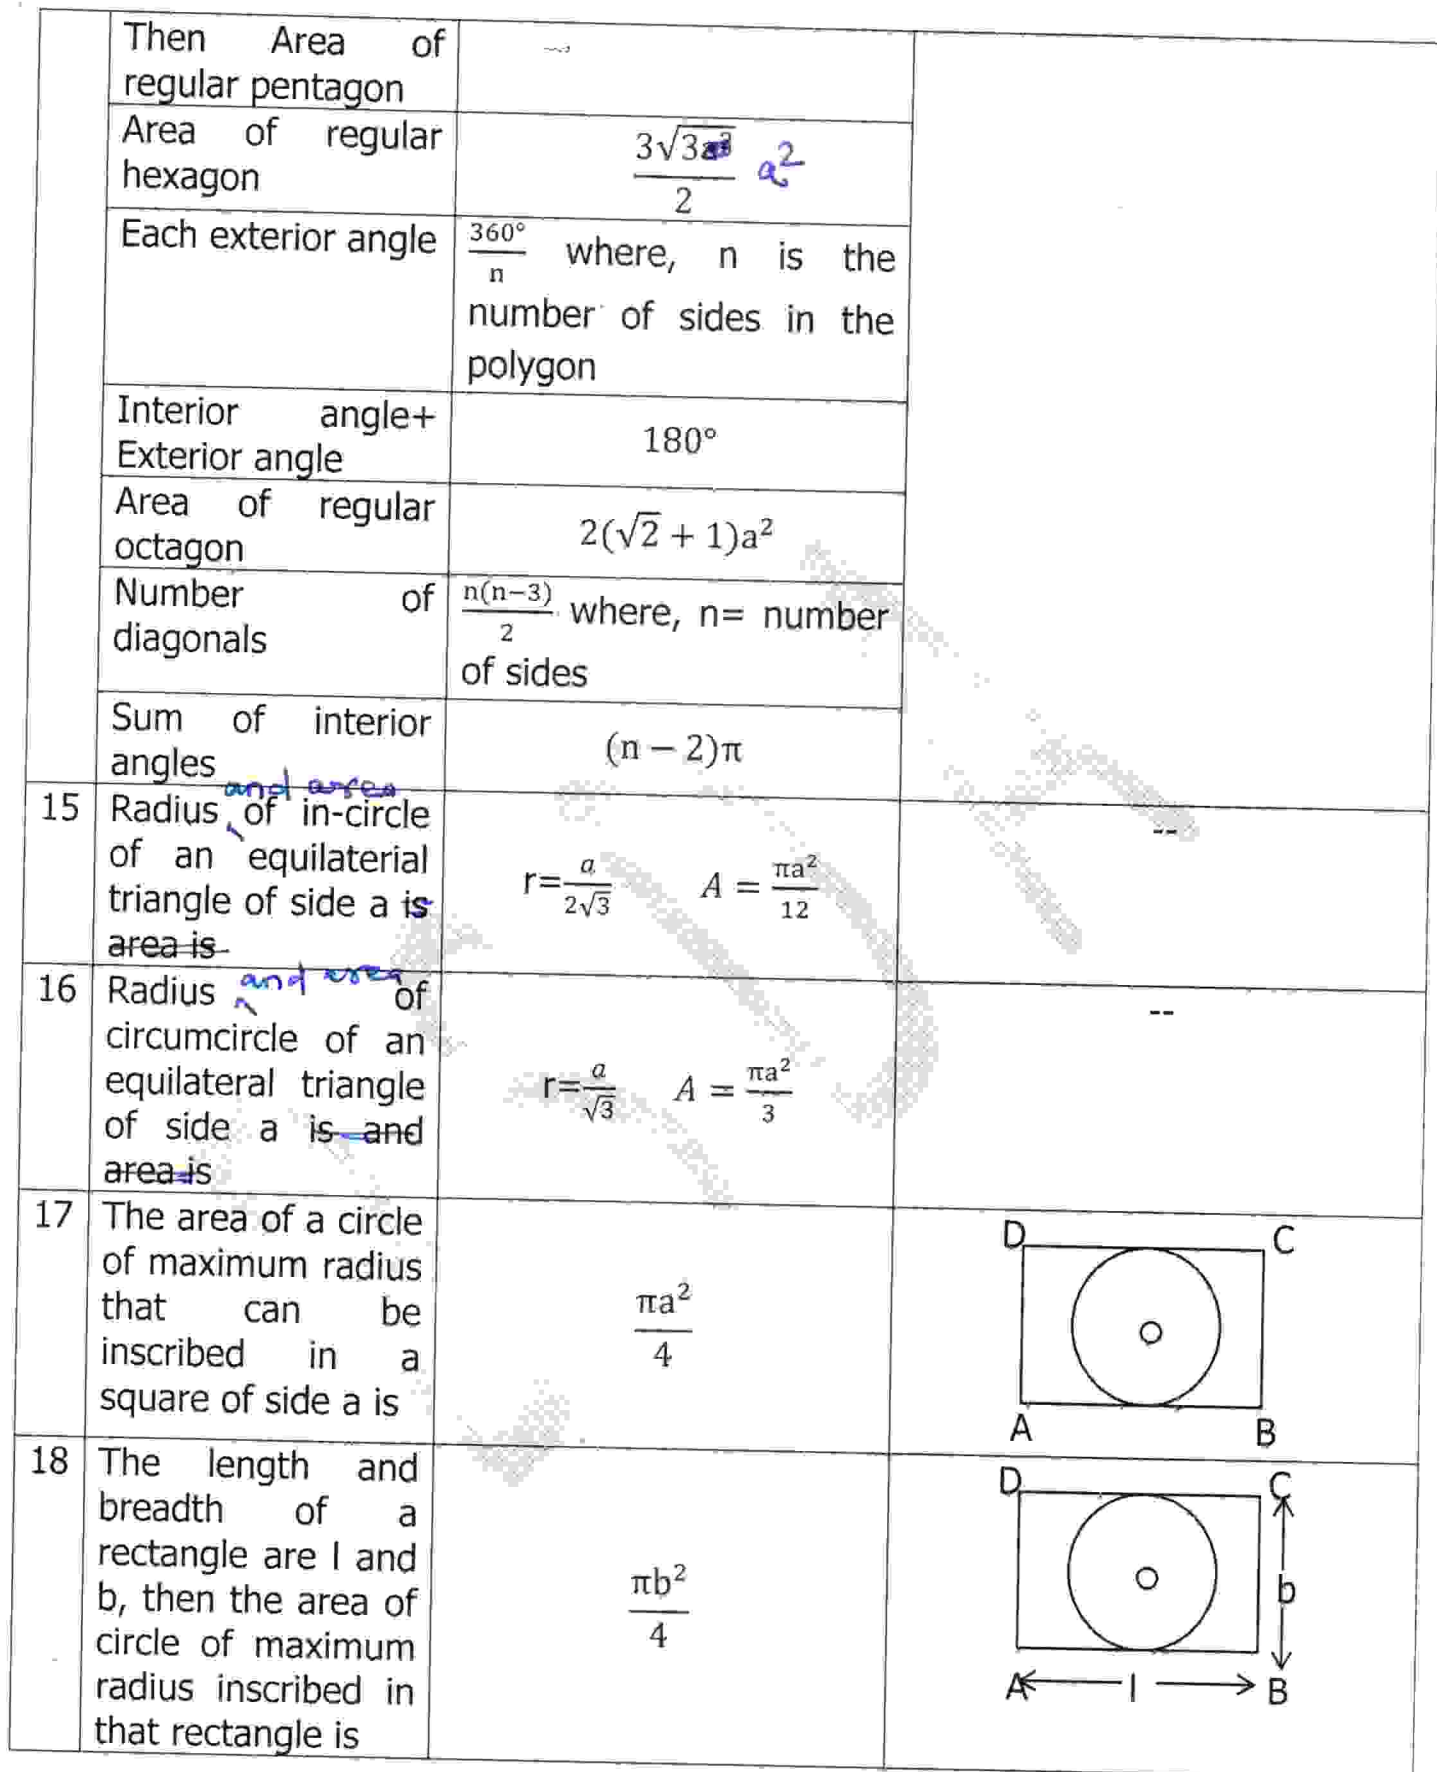 Then Area of
regular pentagon
Area of regular
hexagon
3√3a³/2 a²
Each exterior angle
360°/n where, n is the
number of sides in the
polygon
Interior angle+
Exterior angle
180°
Area of regular
octagon
2(√2 + 1)a²
Number of
diagonals
n(n−3)/2 where, n= number
of sides
Sum of interior
angles
(n − 2)π
and area
15 Radius of in-circle
of an equilaterial
triangle of side a is
area is
r=a/2√3 A = πa²/12
--
and area
16 Radius of
circumcircle of an
equilateral triangle
of side a is and
area is
r=a/√3 A = πa²/3
--
17 The area of a circle
of maximum radius
that can be
inscribed in a
square of side a is
πa²/4
D C
O
A B
18 The length and
breadth of a
rectangle are l and
b, then the area of
circle of maximum
radius inscribed in
that rectangle is
πb²/4
D C
O b
A l B